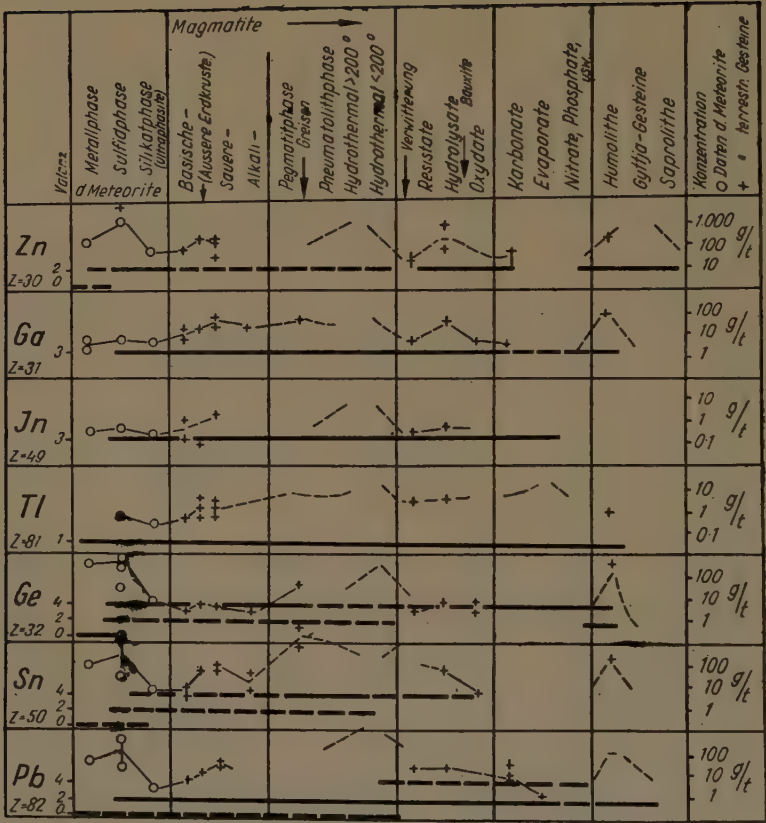 Magmatite
Valenz
Metallphase
Sulfidphase
Silikatphase
(Ultraphasite)
d Meteorite
Basische-
(Äussere Erdkruste)
Sauere-
Alkali-
Pegmatitphase
Greisen
Pneumatolithphase
Hydrothermal>200°
Hydrothermal<200°
Verwitterung
Resistate
Hydrolysate
Bauxite
Oxydate
Karbonate
Evaporate
Nitrate, Phosphate,
usw.
Humolithe
Gyttja-Gesteine
Saprolithe
Konzentration
O Daten d. Meteorite
+ " terrestr. Gesteine
Zn
Z=30
2
0
1.000
100
10
g/t
Ga
Z=31
3
100
10
1
g/t
Jn
Z=49
3
10
1
0·1
g/t
Tl
Z=81
1
10
1
0·1
g/t
Ge
Z=32
4
2
0
100
10
1
g/t
Sn
Z=50
4
2
0
100
10
1
g/t
Pb
Z=82
4
2
0
100
10
1
g/t